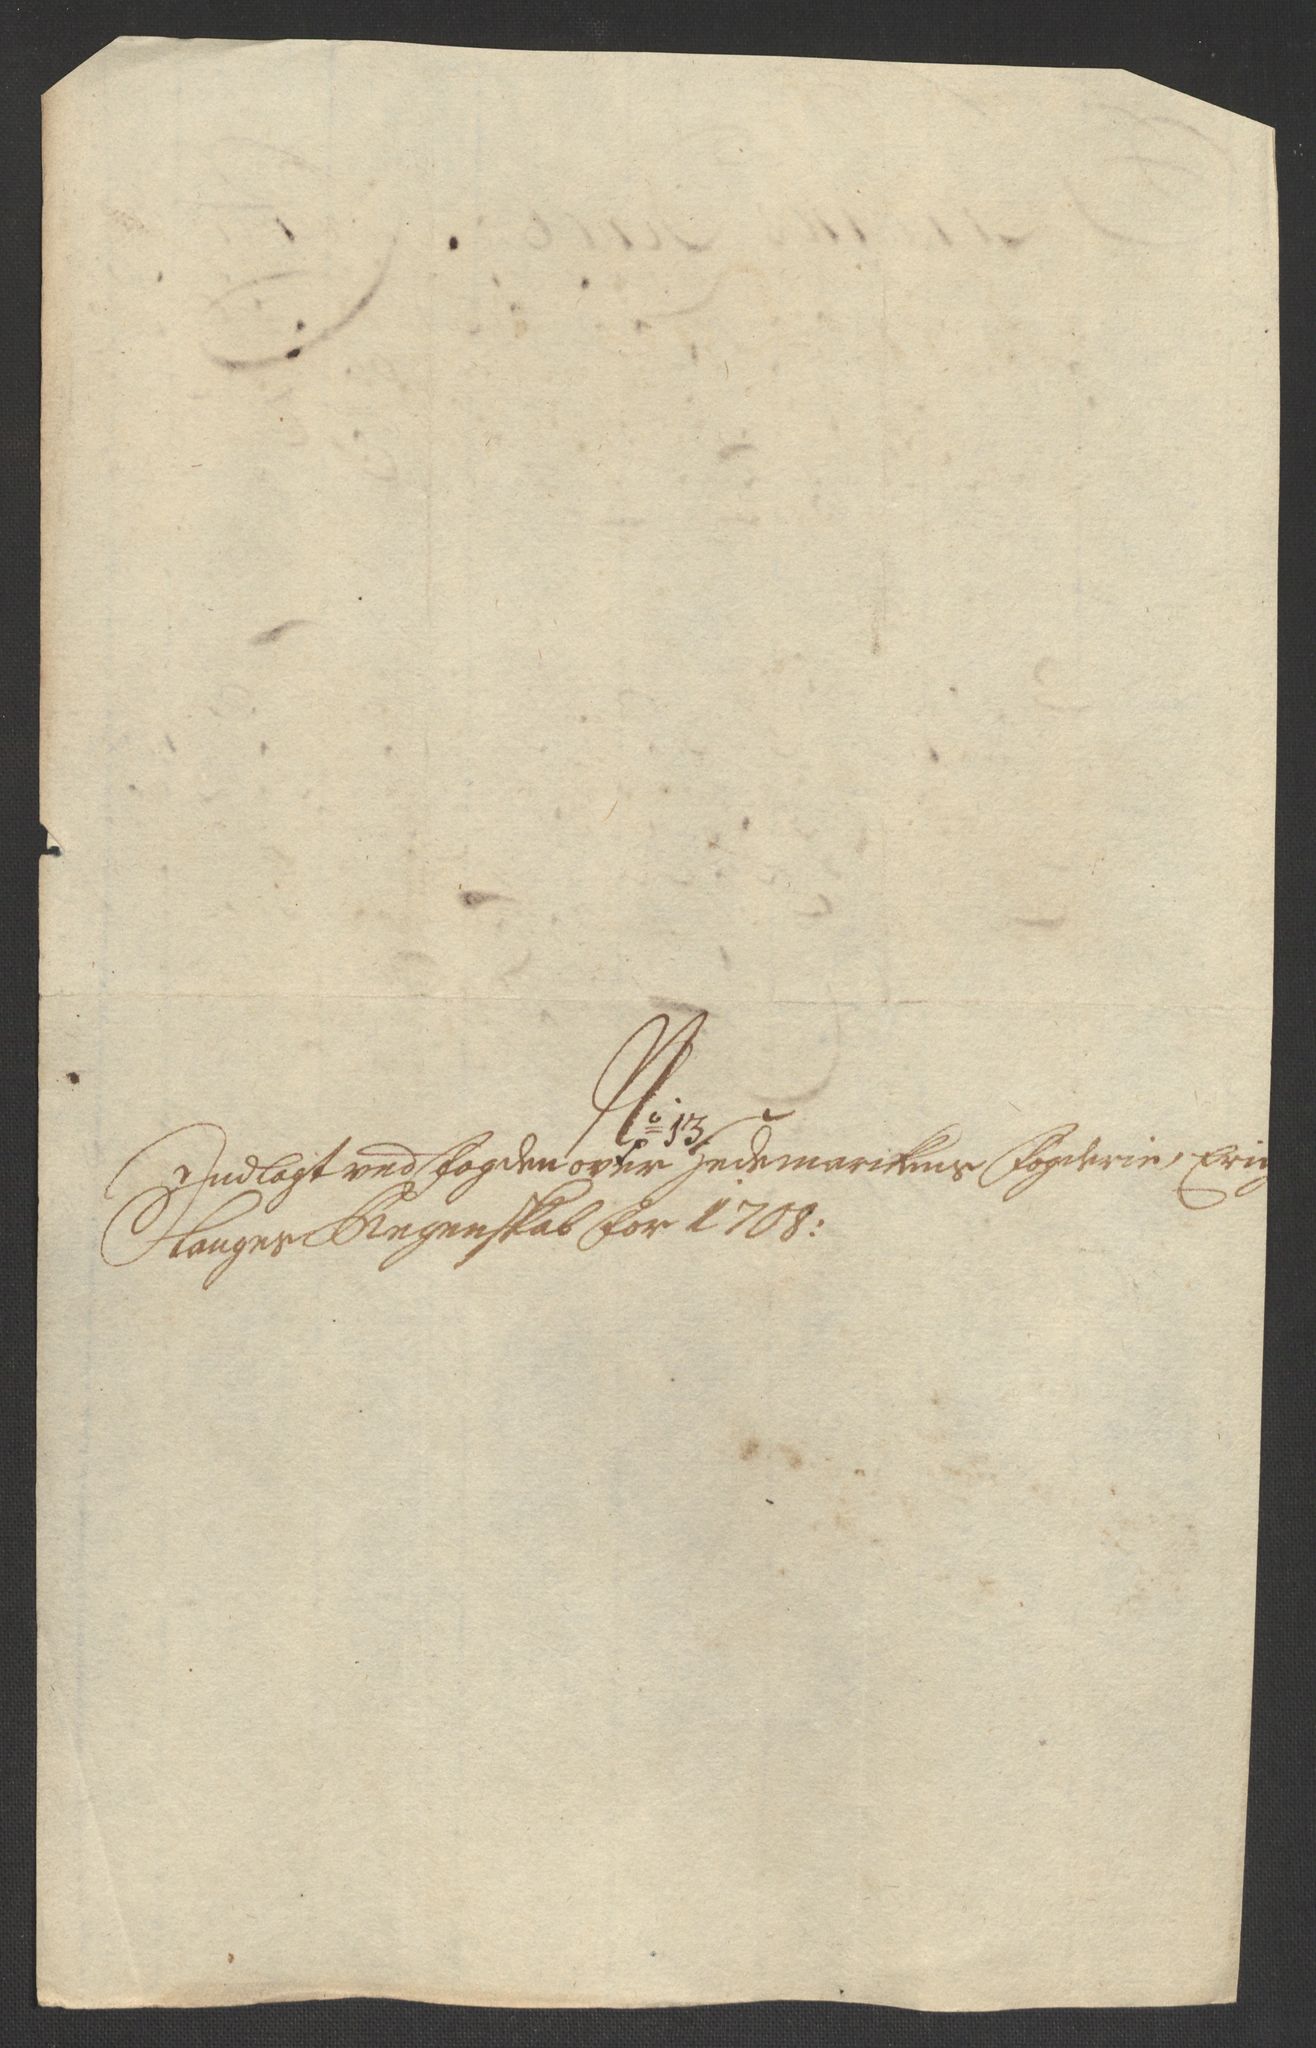 No: 13.
Indlagt ved fogden over Hedemarckens fogderie, Erig
Slanges Regenskab for 1708: